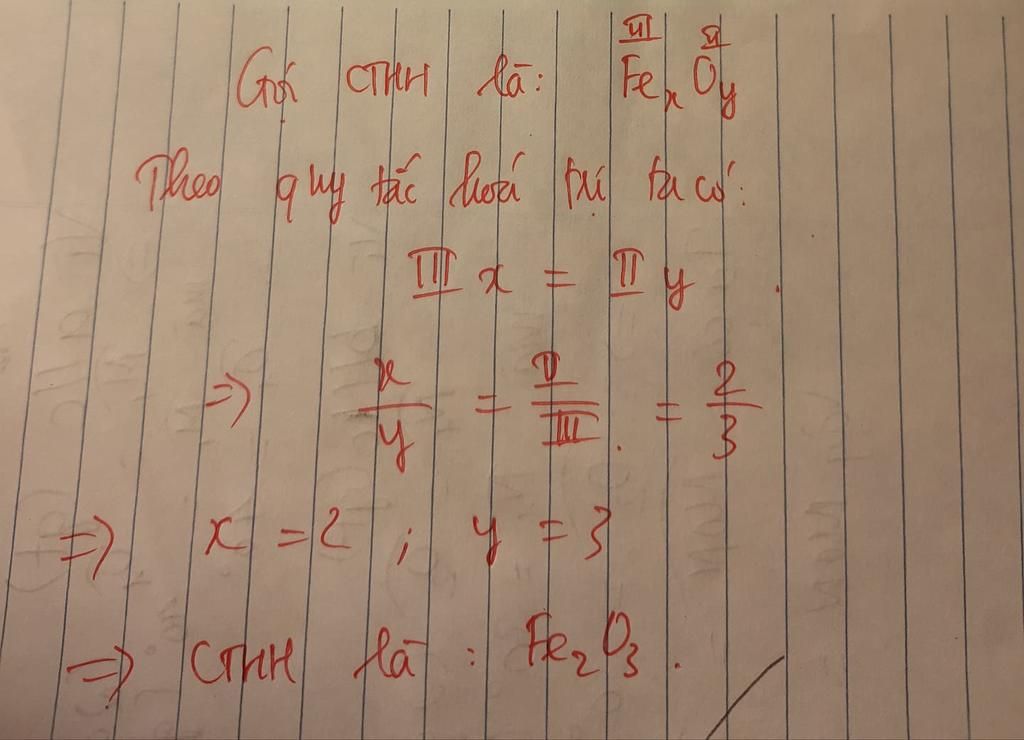 III II
Gọi CTHH là: FexOy
Theo quy tắc hoá trị ta có:
III x = II y
=> x/y = II/III = 2/3
=> x = 2 ; y = 3
=> CTHH là : Fe₂O₃.